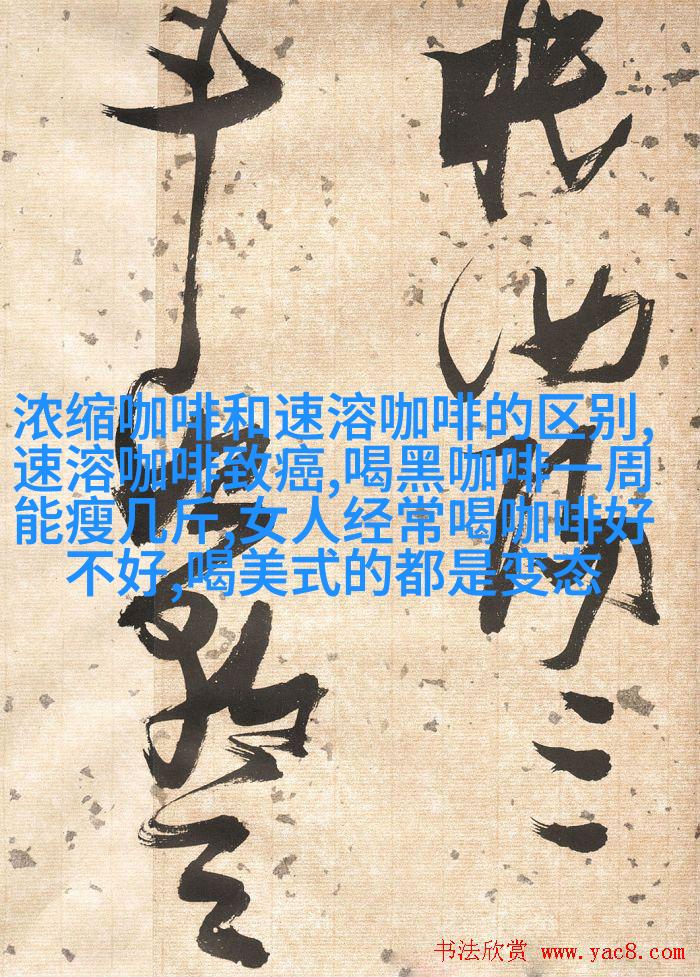 眠汝陽三
斗始朝天
浓缩咖啡和速溶咖啡的区别,
速溶咖啡致癌,喝黑咖啡一周
能瘦几斤,女人经常喝咖啡好
不好,喝美式的都是变态
书法欣赏 www.yac8.com